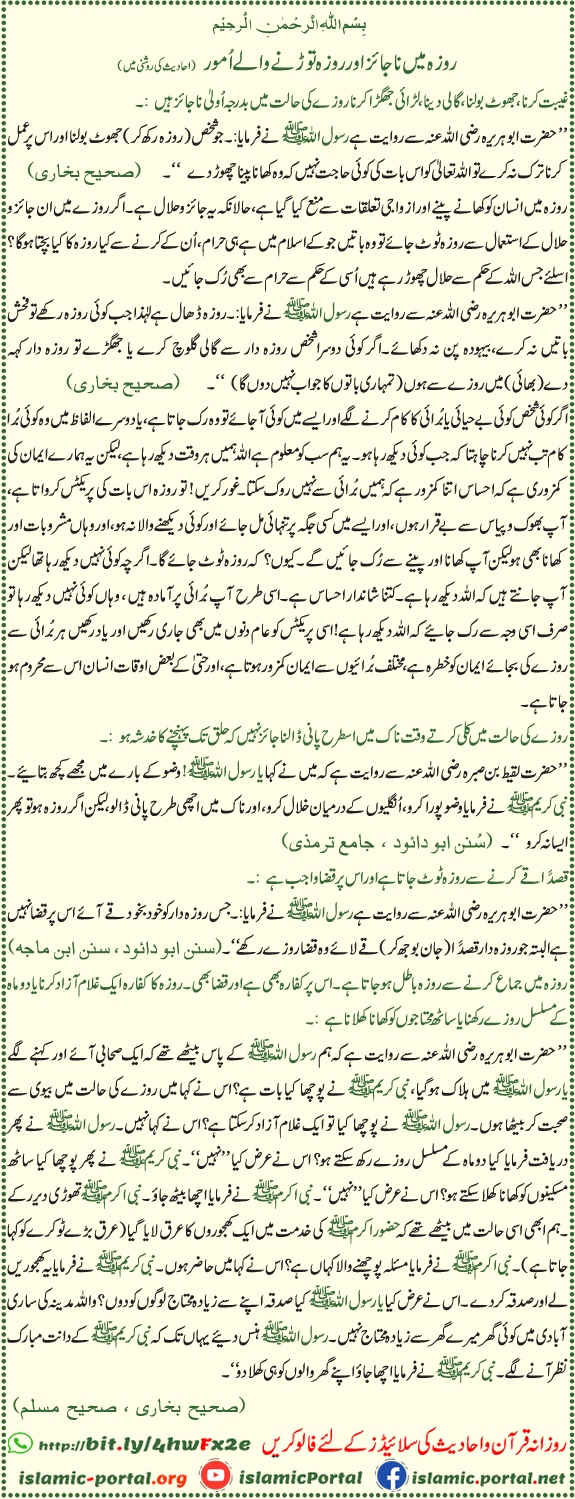 بِسْمِ اللهِ الرَّحْمٰنِ الرَّحِيْمِ
روزہ میں ناجائز اور روزہ توڑنے والے اُمور (احادیث کی روشنی میں)
غیبت کرنا، جھوٹ بولنا، گالی دینا، لڑائی جھگڑا کرنا روزے کی حالت میں بدرجہ اُولیٰ ناجائز ہیں :۔
’’حضرت ابو ہریرہ رضی اللہ عنہ سے روایت ہے رسول اللہ ﷺ نے فرمایا:۔ جو شخص (روزہ رکھ کر) جھوٹ بولنا اور اس پر عمل
کرنا ترک نہ کرے تو اللہ تعالیٰ کو اس بات کی کوئی حاجت نہیں کہ وہ کھانا پینا چھوڑ دے ‘‘۔ (صحیح بخاری)
روزہ میں انسان کو کھانے پینے اور ازواجی تعلقات سے منع کیا گیا ہے، حالانکہ یہ جائز و حلال ہے۔ اگر روزے میں ان جائز و
حلال کے استعمال سے روزہ ٹوٹ جائے تو وہ باتیں جو کے اسلام میں ہے ہی حرام، اُن کے کرنے سے کیا روزہ کا کیا بچتا ہوگا؟
اسلئے جس اللہ کے حکم سے حلال چھوڑ رہے ہیں اُسی کے حکم سے حرام سے بھی رُک جائیں۔
’’حضرت ابو ہریرہ رضی اللہ عنہ سے روایت ہے رسول اللہ ﷺ نے فرمایا:۔ روزہ ڈھال ہے لہٰذا جب کوئی روزہ رکھے تو فحش
باتیں نہ کرے، بیہودہ پن نہ دکھائے۔ اگر کوئی دوسرا شخص روزہ دار سے گالی گلوچ کرے یا جھگڑے تو روزہ دار کہہ
دے (بھائی) میں روزے سے ہوں (تمہاری باتوں کا جواب نہیں دوں گا) ‘‘۔ (صحیح بخاری)
اگر کوئی شخص کوئی بے حیائی یا بُرائی کا کام کرنے لگے اور ایسے میں کوئی آ جائے تو وہ رک جاتا ہے، یا دوسرے الفاظ میں وہ کوئی بُرا
کام تب نہیں کرنا چاہتا کہ جب کوئی دیکھ رہا ہو۔ یہ ہم سب کو معلوم ہے اللہ ہمیں ہر وقت دیکھ رہا ہے، لیکن یہ ہمارے ایمان کی
کمزوری ہے کہ احساس اتنا کمزور ہے کہ ہمیں بُرائی سے نہیں روک سکتا۔ غور کریں! تو روزہ اس بات کی پریکٹس کرواتا ہے،
آپ بھوک و پیاس سے بے قرار ہوں، اور ایسے میں کسی جگہ پر تنہائی مل جائے اور کوئی دیکھنے والا نہ ہو، اور وہاں مشروبات اور
کھانا بھی ہو لیکن آپ کھانا اور پینے سے رُک جائیں گے۔ کیوں؟ کہ روزہ ٹوٹ جائے گا۔ اگرچہ کوئی نہیں دیکھ رہا تھا لیکن
آپ جانتے ہیں کہ اللہ دیکھ رہا ہے۔ کتنا شاندار احساس ہے۔ اسی طرح آپ بُرائی پر آمادہ ہیں ، وہاں کوئی نہیں دیکھ رہا تو
صرف اسی وجہ سے رک جایئے کہ اللہ دیکھ رہا ہے! اسی پریکٹس کو عام دنوں میں بھی جاری رکھیں اور یاد رکھیں ہر بُرائی سے
روزے کی بجائے ایمان کو خطرہ ہے، مختلف بُرائیوں سے ایمان کمزور ہوتا ہے، اور حتیٰ کے بعض اوقات انسان اس سے محروم ہو
جاتا ہے۔
روزے کی حالت میں کلی کرتے وقت ناک میں اسطرح پانی ڈالنا جائز نہیں کہ حلق تک پہنچنے کا خدشہ ہو :۔
’’حضرت لقیط بن صبرہ رضی اللہ عنہ سے روایت ہے کہ میں نے کہا یا رسول اللہ ﷺ! وضو کے بارے میں مجھے کچھ بتائیے ۔
نبی کریم ﷺ نے فرمایا وضو پورا کرو، اُنگلیوں کے درمیان خلال کرو، اور ناک میں اچھی طرح پانی ڈالو، لیکن اگر روزہ ہو تو پھر
ایسا نہ کرو ‘‘۔ (سُنن ابو دائود ، جامع ترمذی)
قصداً قے کرنے سے روزہ ٹوٹ جاتا ہے اور اس پر قضا واجب ہے :۔
’’حضرت ابو ہریرہ رضی اللہ عنہ سے روایت ہے رسول اللہ ﷺ نے فرمایا:۔ جس روزہ دار کو خود بخود قے آئے اس پر قضا نہیں
ہے البتہ جو روزہ دار قصداً (جان بوجھ کر) قے لائے وہ قضا روزے رکھے‘‘۔ (سنن ابو دائود ، سنن ابن ماجہ)
روزہ میں جماع کرنے سے روزہ باطل ہو جاتا ہے۔ اس پر کفارہ بھی ہے اور قضا بھی۔ روزہ کا کفارہ ایک غلام آزاد کرنا یا دو ماہ
کے مسلسل روزے رکھنا یا ساٹھ محتاجوں کو کھانا کھلانا ہے :۔
’’حضرت ابو ہریرہ رضی اللہ عنہ سے روایت ہے کہ ہم رسول اللہ ﷺ کے پاس بیٹھے تھے کہ ایک صحابی آئے اور کہنے لگے
یا رسول اللہ ﷺ میں ہلاک ہو گیا، نبی کریم ﷺ نے پوچھا کیا بات ہے؟ اس نے کہا میں روزے کی حالت میں بیوی سے
صحبت کر بیٹھا ہوں۔ رسول اللہ ﷺ نے پوچھا کیا تو ایک غلام آزاد کر سکتا ہے؟ اس نے کہا نہیں۔ رسول اللہ ﷺ نے پھر
دریافت فرمایا کیا دو ماہ کے مسلسل روزے رکھ سکتے ہو؟ اس نے عرض کیا ’’نہیں‘‘۔ نبی کریم ﷺ نے پھر پوچھا کیا ساٹھ
مسکینوں کو کھانا کھلا سکتے ہو؟ اس نے عرض کیا ’’نہیں‘‘۔ نبی اکرم ﷺ نے فرمایا اچھا بیٹھ جاؤ۔ نبی اکرم ﷺ تھوڑی دیر رکے
۔ ہم ابھی اسی حالت میں بیٹھے تھے کہ حضور اکرم ﷺ کی خدمت میں ایک کھجوروں کا عرق لایا گیا (عرق بڑے ٹوکرے کو کہا
جاتا ہے)۔ نبی اکرم ﷺ نے فرمایا مسئلہ پوچھنے والا کہاں ہے؟ اس نے کہا میں حاضر ہوں۔ نبی کریم ﷺ نے فرمایا یہ کھجوریں
لے اور صدقہ کر دے۔ اس نے عرض کیا یا رسول اللہ ﷺ کیا صدقہ اپنے سے زیادہ محتاج لوگوں کو دوں؟ واللہ مدینہ کی ساری
آبادی میں کوئی گھر میرے گھر سے زیادہ محتاج نہیں۔ رسول اللہ ﷺ ہنس دیئے یہاں تک کہ نبی کریم ﷺ کے دانت مبارک
نظر آنے لگے۔ نبی کریم ﷺ نے فرمایا اچھا جاؤ اپنے گھر والوں کو ہی کھلا دو‘‘۔
(صحیح بخاری ، صحیح مسلم)
روزانہ قرآن و احادیث کی سلائیڈز کے لئے فالو کریں http://bit.ly/4hwFx2e
islamic-portal.org islamicPortal islamic.portal.net